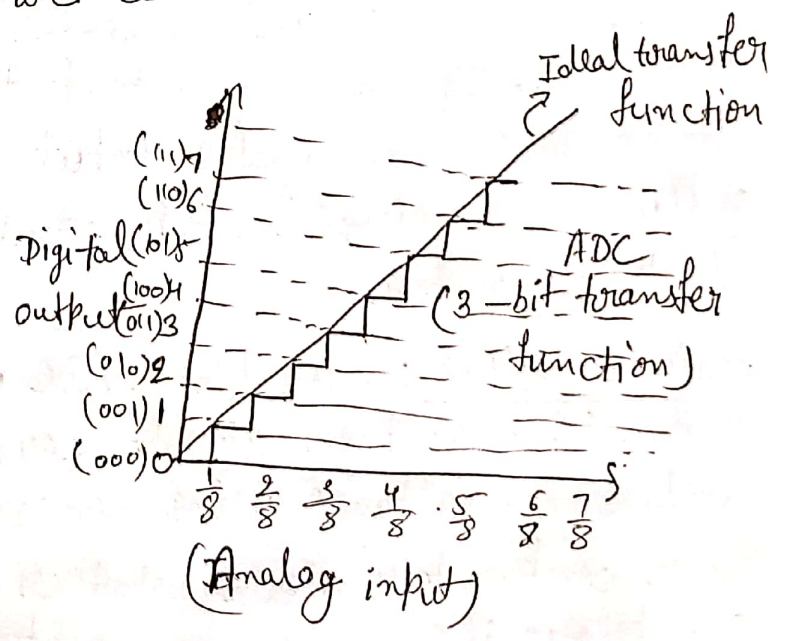 Ideal transfer
function
(111)7
(110)6
Digital (101)5
(100)4
output (011)3
(010)2
(001)1
(000)0
ADC
(3-bit transfer
function)
1/8 2/8 3/8 4/8 5/8 6/8 7/8
(Analog input)